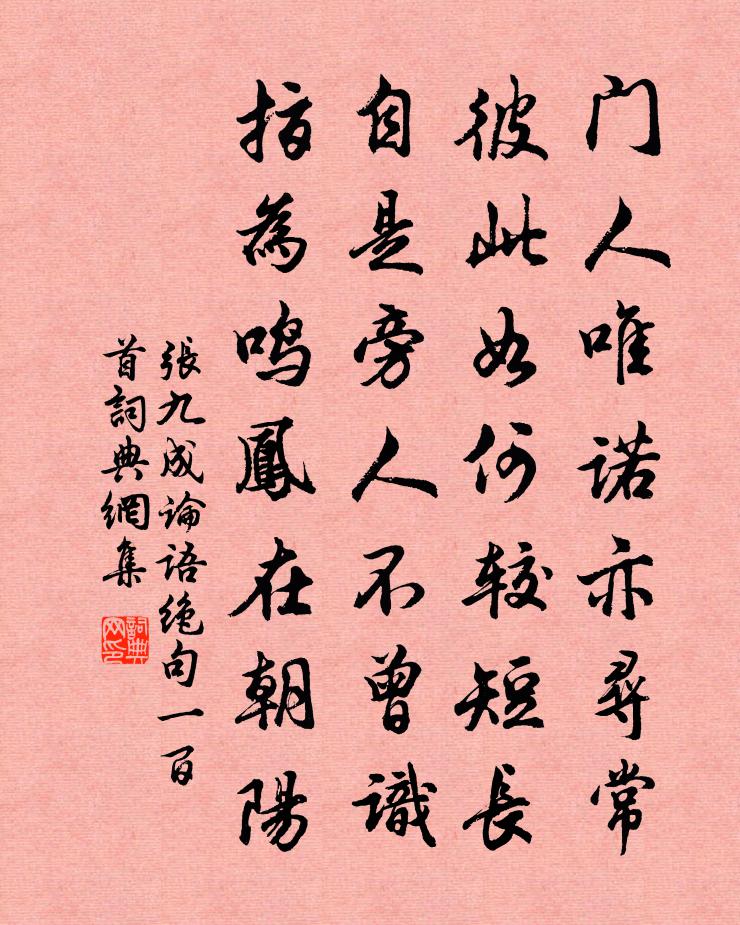 门人唯诺亦尋常
彼此如何较短長
自是旁人不曾識
指為鸣鳳在朝陽
張九成论语绝句一百
首詞典網集
詞典
网印